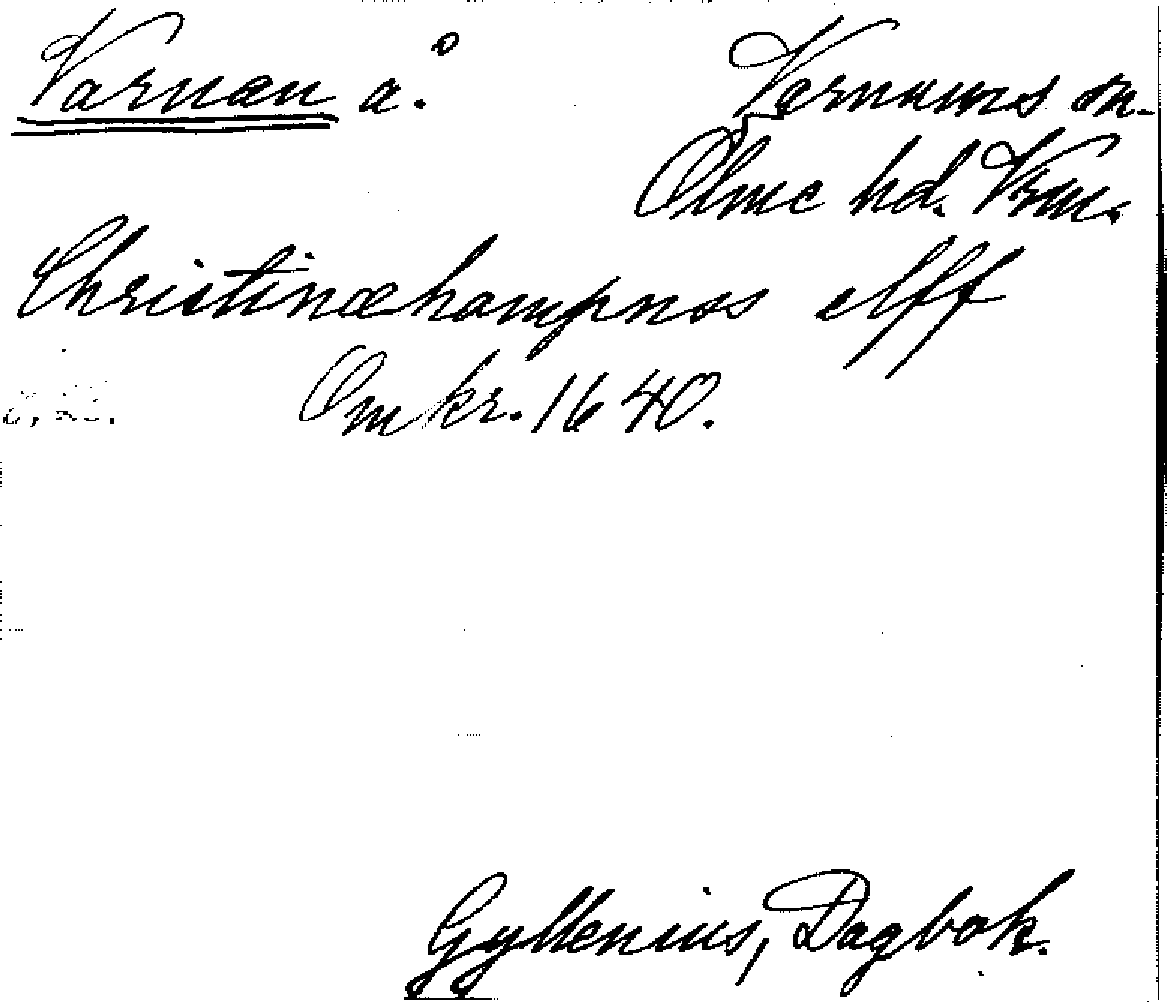 Varnan å. Varnums sn.
Ölme hd. Vrm.
Christinæhampnss elff
Omkr. 1640.
Gyllenius, Dagbok.